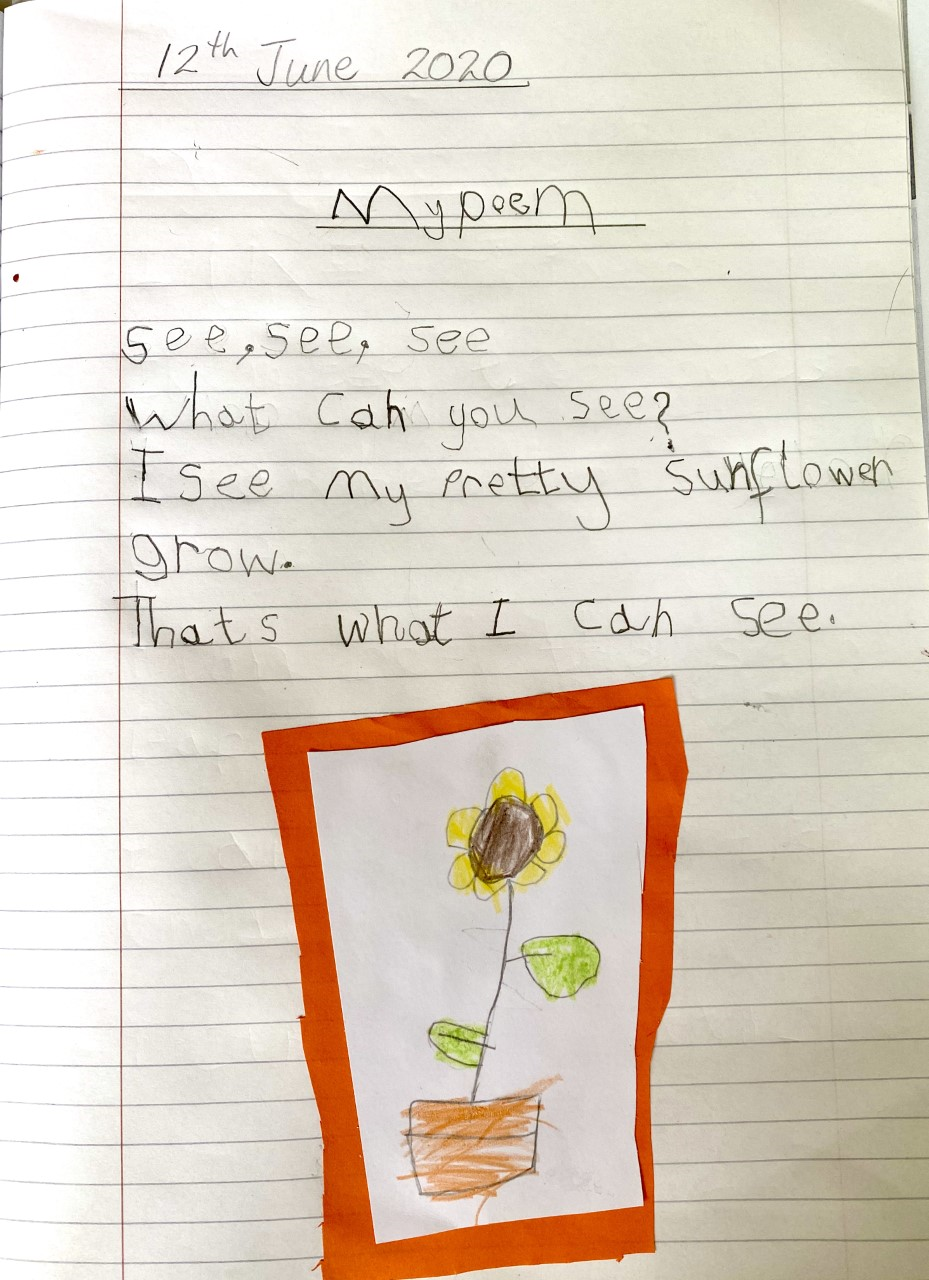 12th June 2020
My poem
see, see, see
What can you see?
I see my pretty sunflower
grow.
Thats what I can see.